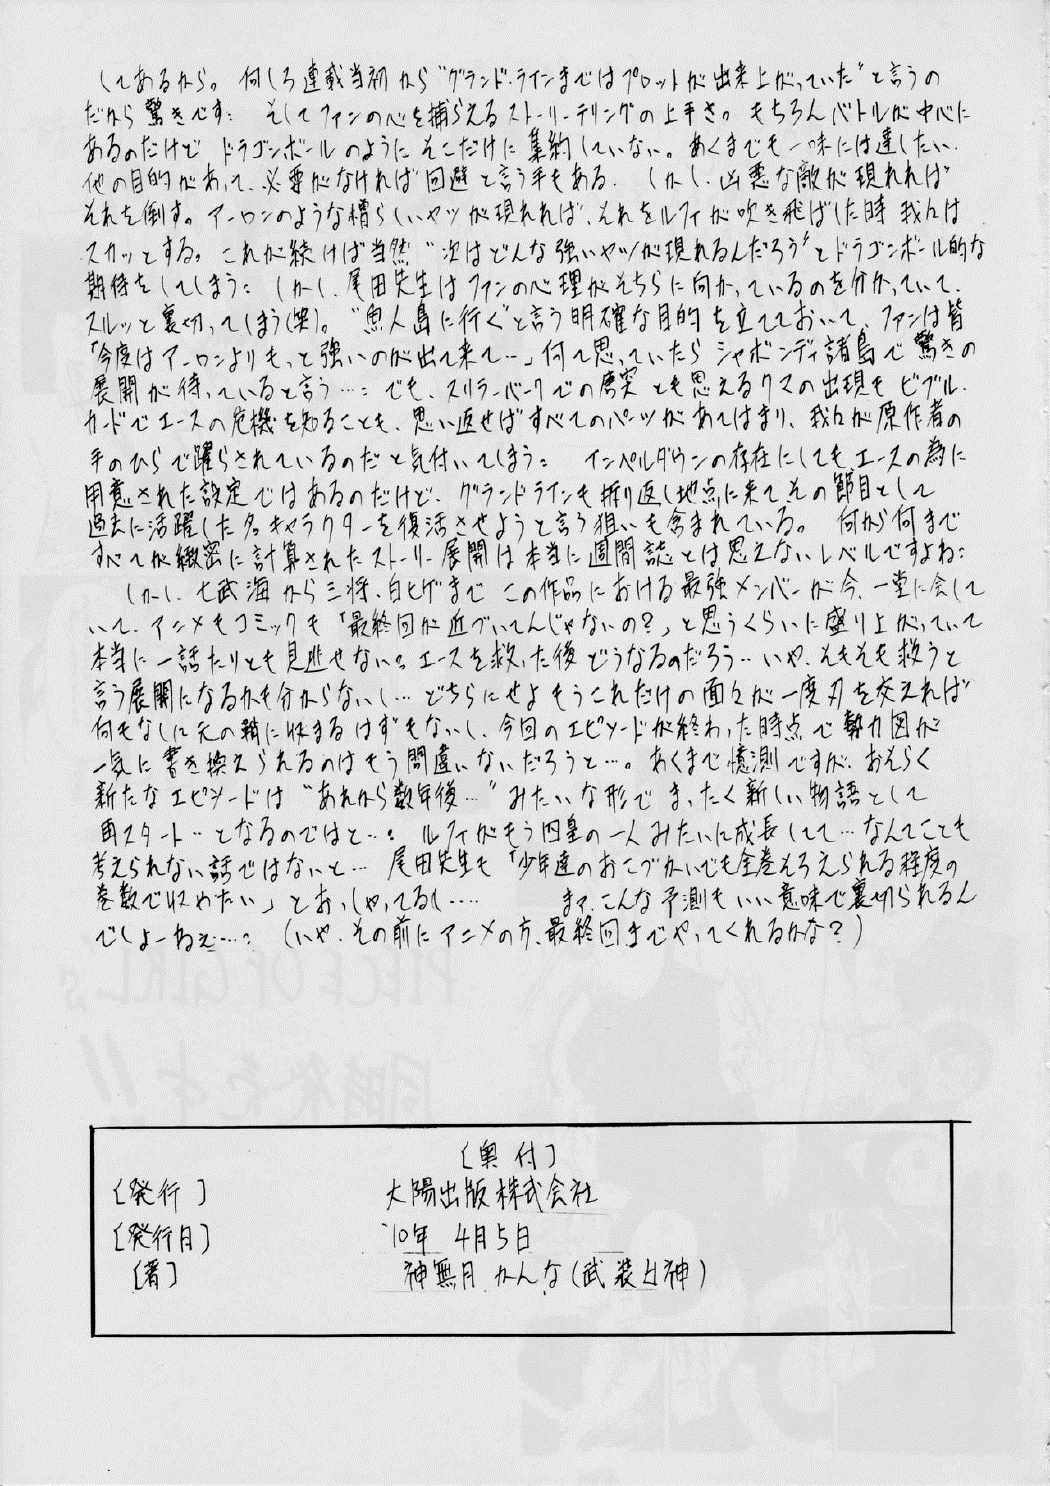 してあるから。何しろ連載当初から"グランド・ラインまではプロットが出来上がっていた"と言うの
だから驚きです： そしてファンの心を捕らえるストーリーテリングの上手さ。もちろんバトルが中心に
あるのだけど ドラゴンボールのようにそこだけに集約していない。あくまでも一味には達したい
他の目的があって、必要がなければ回避と言う手もある。しかし、凶悪な敵が現れれば
それを倒す。アーロンのような憎らしいヤツが現れれば、それをルフィが吹き飛ばした時 我々は
スカッとする。これが続けば当然"次はどんな強いヤツが現れるんだろう"とドラゴンボール的な
期待をしてしまう： しかし、尾田先生はファンの心理がそちらに向かっているのを分かっていて、
スルッと裏切ってしまう(笑)。"魚人島に行く"と言う明確な目的を立てておいて、ファンは皆
「今度はアーロンよりもっと強いのが出て来て…」何て思っていたらシャボンディ諸島で驚きの
展開が待っていると言う…： でも、スリラーバークでの唐突とも思えるクマの出現もビブル・
カードでエースの危機を知ることも、思い返せばすべてのパーツがあてはまり、我々が原作者の
手のひらで躍らされているのだと気付いてしまう： インペルダウンの存在にしてもエースの為に
用意された設定ではあるのだけど、グランドラインも折り返し地点に来てその節目として
過去に活躍した名キャラクターを復活させようと言う狙いも含まれている。何から何まで
すべてが緻密に計算されたストーリー展開は本当に週間誌とは思えないレベルですよね：
しかし、七武海から三将、白ヒゲまでこの作品における最強メンバーが今、一堂に会して
いて、アニメもコミックも「最終回が近づいてんじゃないの?」と思うくらいに盛り上がっていて
本当に一話たりとも見逃せない。エースを救った後どうなるのだろう…いや、そもそも救うと
言う展開になるかも分からないし…どちらにせよもうこれだけの面々が一度刃を交えれば
何もなしに元の鞘に収まるはずもないし、今回のエピソードが終わった時点で勢力図が
一気に書き換えられるのはもう間違いないだろうと…。あくまで憶測ですが、おそらく
新たなエピソードは"あれから数年後…"みたいな形でまったく新しい物語として
再スタート…となるのではと…： ルフィがもう四皇の一人みたいに成長してて…なんてことも
考えられない話ではないと…尾田先生も「少年達のおこづかいでも全巻そろえられる程度の
巻数で収めたい」とおっしゃってるし…… まァ、こんな予測もいい意味で裏切られるん
でしょーねぇ…： (いや、その前にアニメの方、最終回までやってくれるかな?)
〔奥付〕
〔発行〕 大陽出版株式会社
〔発行日〕 '10年 4月5日
〔著〕 神無月かんな(武装女神)